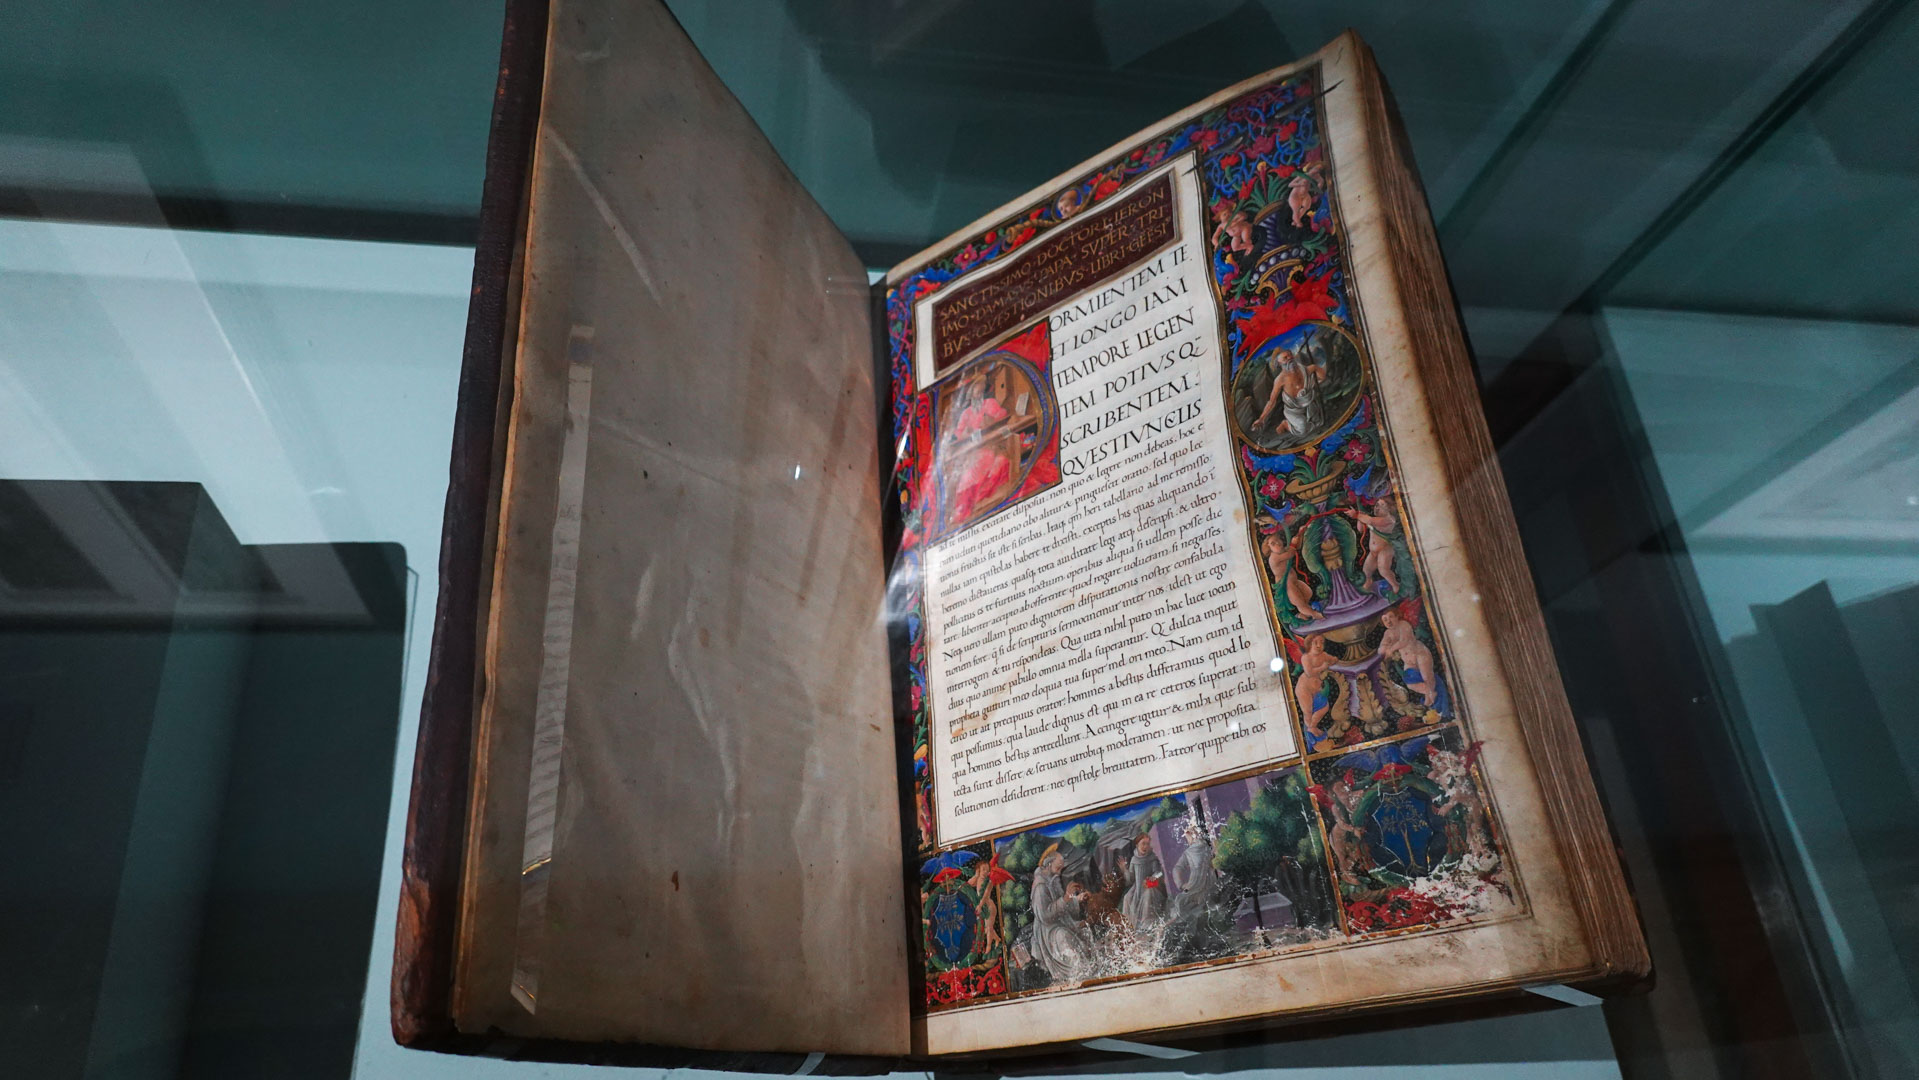 SANCTISSIMO · DOCTORI · IERON
IMO · DAMASVS · PAPA · SVPER · TRI
BVS · QVESTIONIBVS · LIBRI · GEESI
DORMIENTEM TE
ET LONGO IAM
TEMPORE LEGEN
TEM POTIVS Q̃
SCRIBENTEM.
QVESTIVNCVLIS
ad te missis, excitare disposui: non quo & legere non debeas: hoc e
nim ueluti quotidiano cibo alitur & pinguescit oratio: sed quo lec
tionis fructus sit iste si scribas. Itaq; qm̃ heri tabellario ad me remisso:
nullas iam epistolas habere te dixisti, exceptis his quas aliquando ĩ
heremo dictaueras: quasq; tota auiditate legi atq; descripsi: & ultro
pollicitus es te furtiuis noctium operibus aliqua si uellem posse dic
tare: libenter accipio ab offerente quod rogare uolueram si negasses.
Neq; uero ullam puto digniorem disputationis nostre confabula
tionem fore, q̃ si de scripturis sermocinemur inter nos. idest ut ego
interrogem & tu respondeas. Qua uita nihil puto in hac luce iocun
dius quo anime pabulo omnia mella superantur. Q̃ dulcia inquit
propheta gutturi meo eloqua tua super mel ori meo. Nam cum id
circo ut ait precipuus orator: homines a bestiis differamus quod lo
qui possumus: qua laude dignus est qui in ea re ceteros superat: in
qua homines bestiis antecellunt. Accingere igitur & mihi que sub
iecta sunt dissere: & seruans utrobiq; moderamen: ut nec proposita
solutionem desiderent: nec epistole breuitatem. Fateor quippe tibi eos